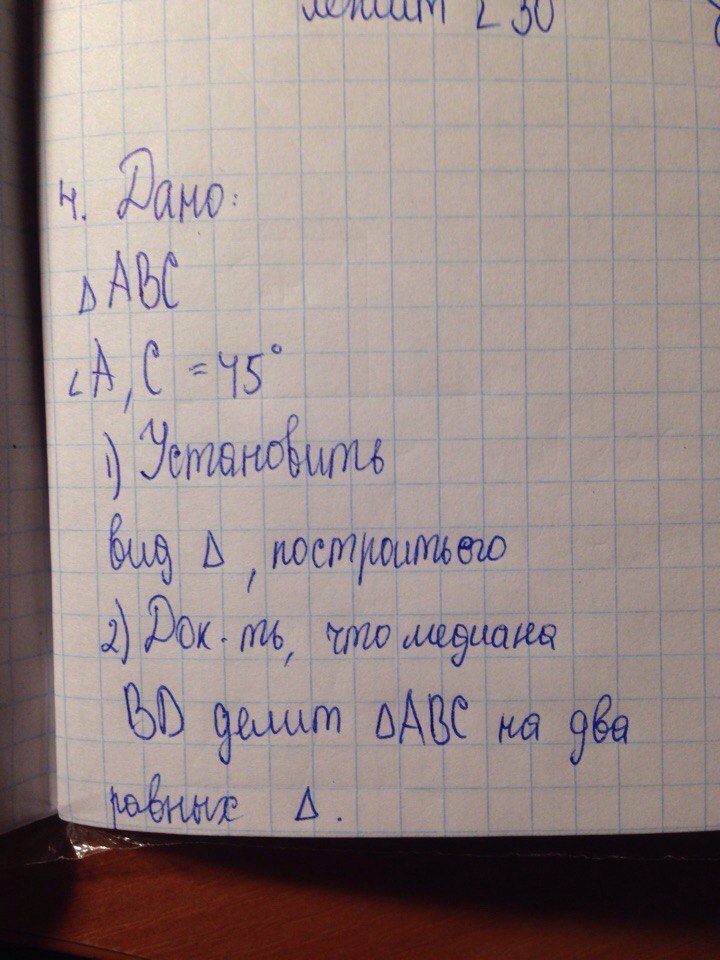 лежит ∠ 30
4. Дано:
Δ ABC
∠A, C = 45°
1) Установить
вид Δ, построить его
2) Док-ть, что медиана
BD делит ΔABC на два
равных Δ.